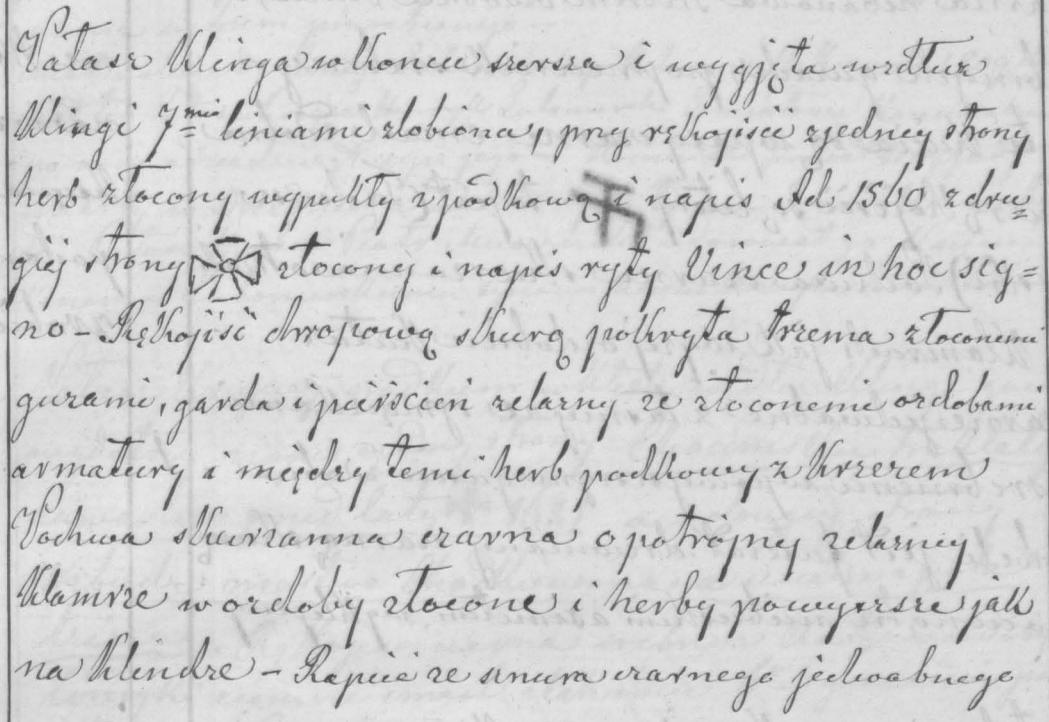 Pałasz Klinga w Koncu szersza i wygjęta wzdłuż
Klingi 7mio liniami żlobiona, przy rękojiści z jedney strony
herb złocony wypukły z pódkową i napis Ad 1560 z dru=
giéj strony złoconej i napis ryty Vince in hoc sig=
no – Rękojiść chropową skurą pokryta trzema złoconemi
guzami, garda i pierścień żelazny ze złoconemi ozdobami
armatury i między temi herb podkowy z Krzerem
Pochwa skurzanna czarna o potrójney żelazney
Klamrze w ozdoby złocone i herby powyższe jak
na Klindze – Rapcie ze sznura czarnego jedwabnego